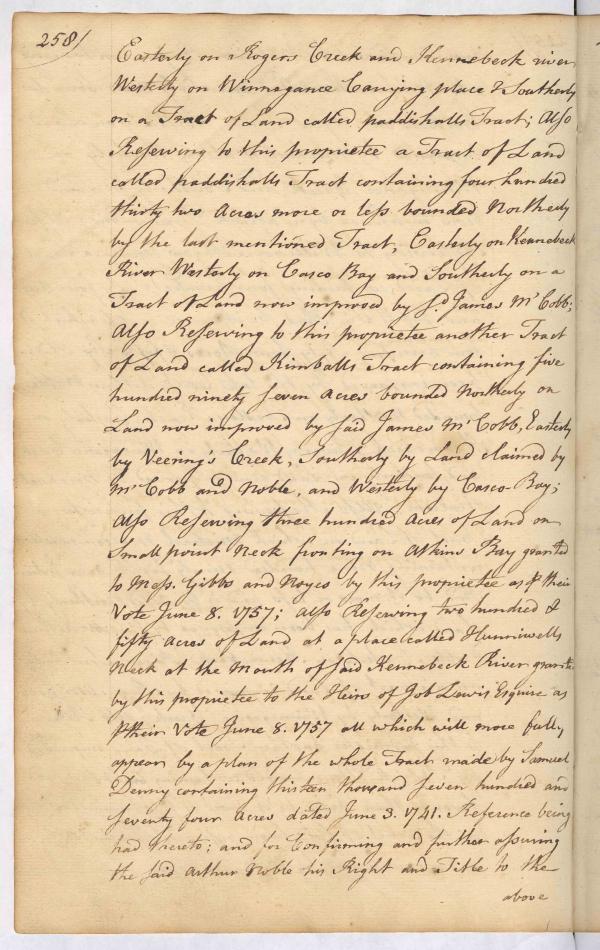 258/
Easterly on Rogers Creek and Kennebeck river
Westerly on Winnagance Carrying place & Southerly
on a Tract of Land called paddishalls Tract; Also
Reserving to this proprietee a Tract of Land
called paddishalls Tract containing four hundred
thirty two Acres more or less bounded Northerly
by the last mentioned Tract, Easterly on Kennebeck
River Westerly on Casco Bay and Southerly on a
Tract of Land now improved by sd. James McCobb;
Also Reserving to this proprietee another Tract
of Land called Kimballs Tract containing five
hundred ninety seven Acres bounded Northerly on
Land now improved by said James McCobb, Easterly
by Veering's Creek, Southerly by Land claimed by
McCobb and Noble, and Westerly by Casco-Bay;
Also Reserving three hundred Acres of Land on
Small point Neck fronting on Atkins Bay granted
to Mess. Gibbs and Noyes by this proprietee as ⅌ their
Vote June 8. 1757; Also Reserving two hundred &
fifty Acres of Land at a place called Hunniwells
Neck at the Mouth of said Kennebeck River granted
by this proprietee to the Heirs of Job Lewis Esquire as
⅌ their Vote June 8. 1757 all which will more fully
appear by a plan of the whole Tract made by Samuel
Denny containing thirteen thousand seven hundred and
seventy four Acres dated June 3. 1741. Reference being
had thereto; and for Confirming and further assuring
the said Arthur Noble his Right and Title to the
above